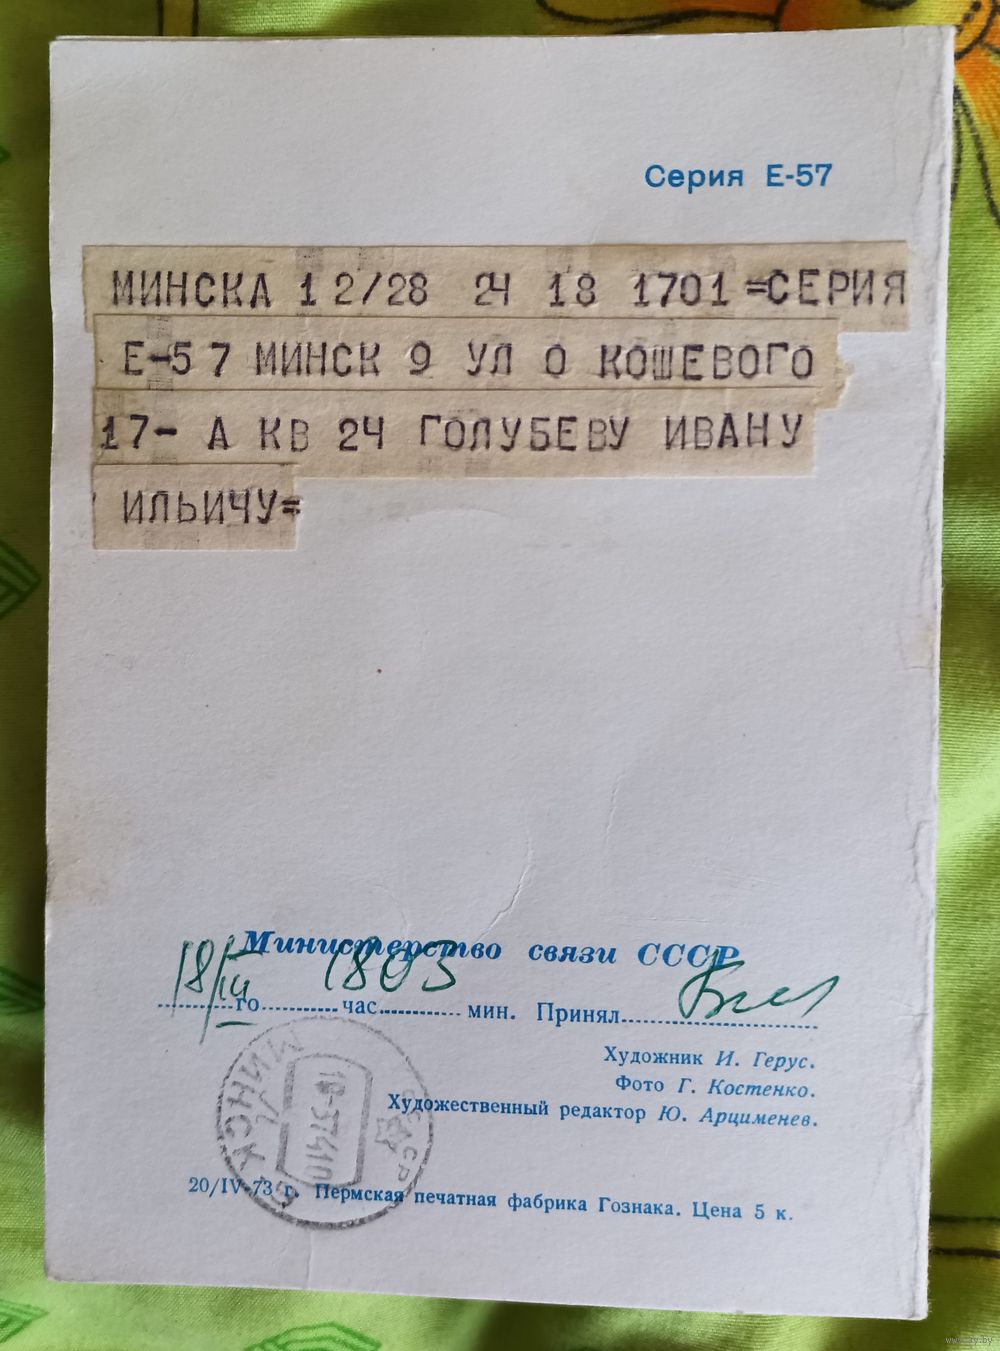 Серия Е-57
МИНСКА 12/28 24 18 1701 =СЕРИЯ
Е-57 МИНСК 9 УЛ О КОШЕВОГО
17- А КВ 24 ГОЛУБЕВУ ИВАНУ
ИЛЬИЧУ=
Министерство связи СССР
18/III го 18 час 03 мин. Принял
Художник И. Герус.
Фото Г. Костенко.
Художественный редактор Ю. Арцименев.
МИНСК СССР
20/IV-73 г. Пермская печатная фабрика Гознака. Цена 5 к.